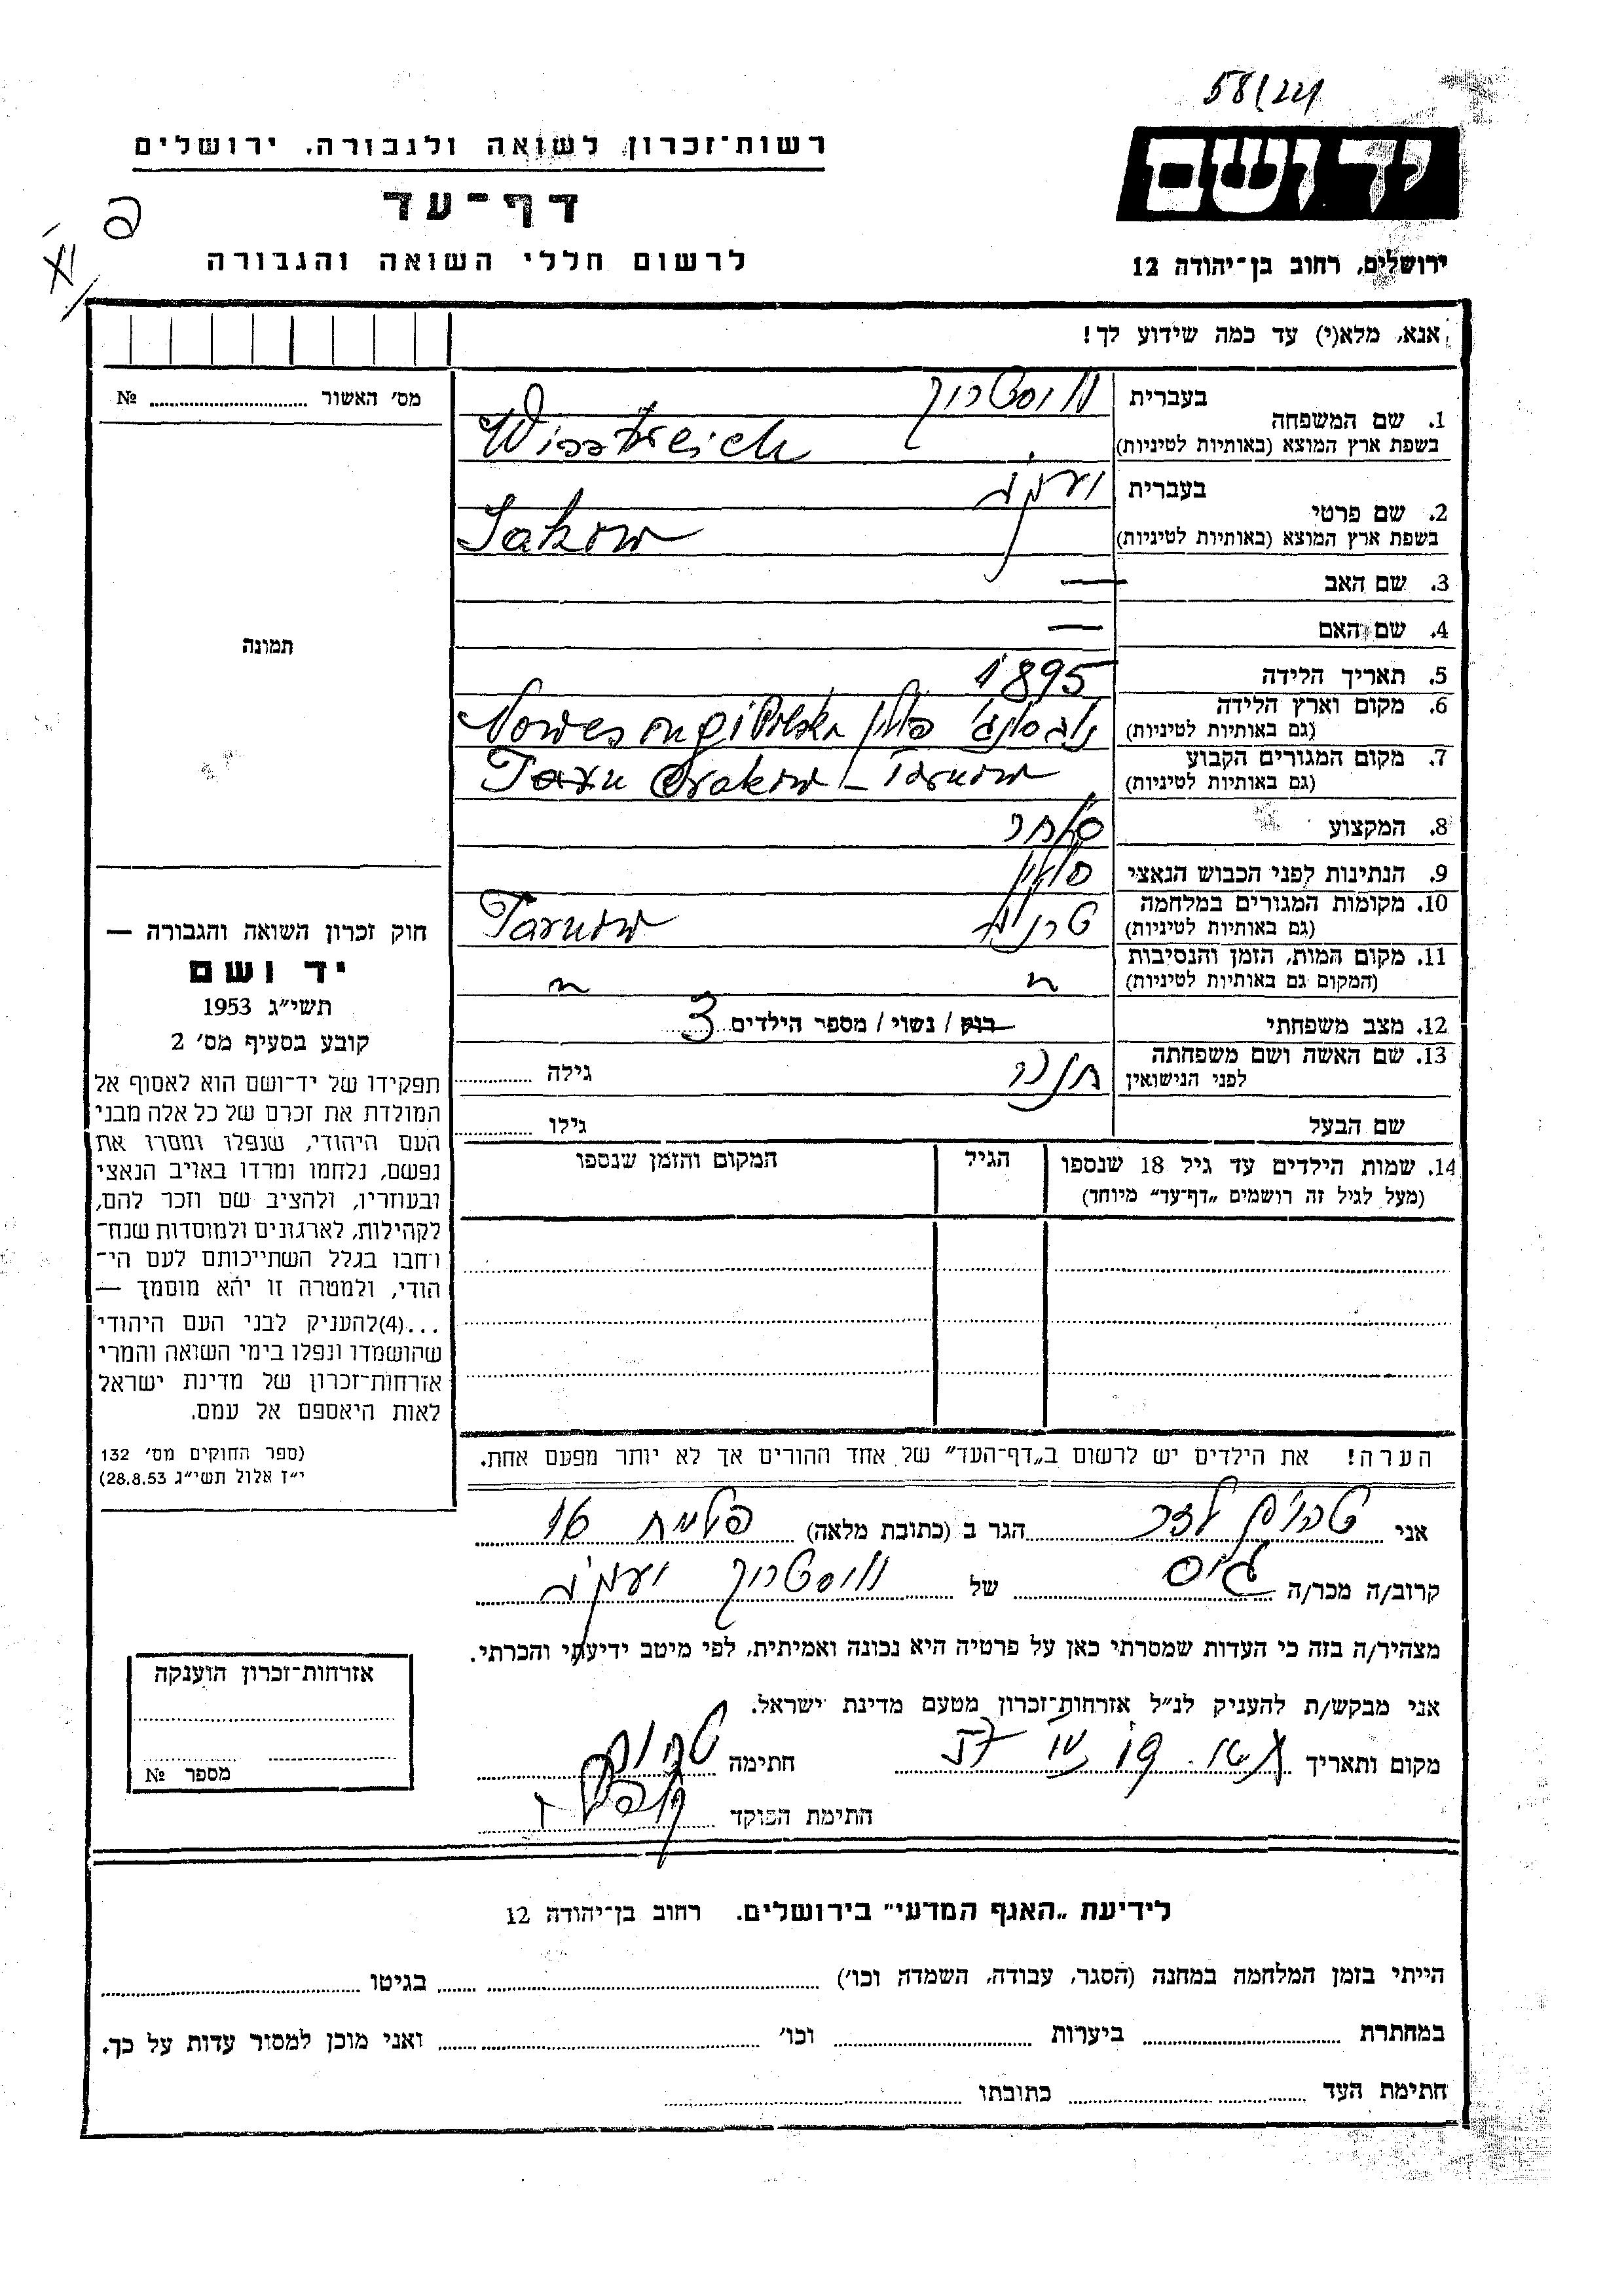 58/224
רשות־זכרון לשואה ולגבורה, ירושלים
יד ושם
דף־עד
לרשום חללי השואה והגבורה
ירושלים, רחוב בן־יהודה 12
אנא, מלא(י) עד כמה שידוע לך!
מס' האשור № 
1. שם המשפחה
בעברית ויסטרייך
בשפת ארץ המוצא (באותיות לטיניות) Wisstreich
2. שם פרטי
בעברית יעקב
בשפת ארץ המוצא (באותיות לטיניות) Jakow
3. שם האב —
4. שם האם —
תמונה
5. תאריך הלידה 1895
6. מקום וארץ הלידה
(גם באותיות לטיניות) פולין
7. מקום המגורים הקבוע
(גם באותיות לטיניות) Crakow – Tarnow
8. המקצוע סוחר
9. הנתינות לפני הכבוש הנאצי פולין
10. מקומות המגורים במלחמה
(גם באותיות לטיניות) טרנוב Tarnow
11. מקום המות, הזמן והנסיבות
(המקום גם באותיות לטיניות) " "
12. מצב משפחתי רווק / נשוי / מספר הילדים 3
13. שם האשה ושם משפחתה
לפני הנישואין גילה
שם הבעל גילו
14. שמות הילדים עד גיל 18 שנספו
(מעל לגיל זה רושמים „דף־עד" מיוחד)
הגיל
המקום והזמן שנספו
חוק זכרון השואה והגבורה —
יד ושם
תשי״ג 1953
קובע בסעיף מס' 2
תפקידו של יד־ושם הוא לאסוף אל
המולדת את זכרם של כל אלה מבני
העם היהודי, שנפלו ומסרו את
נפשם, נלחמו ומרדו באויב הנאצי
ובעוזריו, ולהציב שם וזכר להם,
לקהילות, לארגונים ולמוסדות שנח־
רחבו בגלל השתייכותם לעם הי־
הודי, ולמטרה זו יהא מוסמך —
...(4)להעניק לבני העם היהודי
שהושמדו ונפלו בימי השואה והמרי
אזרחות־זכרון של מדינת ישראל
לאות היאספם אל עמם.
(ספר החוקים מס' 132
י״ז אלול תשי״ג 28.8.53)
הערה! את הילדים יש לרשום ב„דף־העד" של אחד ההורים אך לא יותר מפעם אחת.
אני הגר ב (כתובת מלאה) 16
קרוב/ה מכר/ה גיס של ויסטרייך יעקב
מצהיר/ה בזה כי העדות שמסרתי כאן על פרטיה היא נכונה ואמיתית, לפי מיטב ידיעתי והכרתי.
אני מבקש/ת להעניק לנ״ל אזרחות־זכרון מטעם מדינת ישראל.
מקום ותאריך חתימה
חתימת הפוקד
אזרחות־זכרון הוענקה
מספר №
לידיעת „האגף המדעי" בירושלים. רחוב בן־יהודה 12
הייתי בזמן המלחמה במחנה (הסגר, עבודה, השמדה וכו') בגיטו
במחתרת ביערות וכו' ואני מוכן למסור עדות על כך.
חתימת העד כתובתו